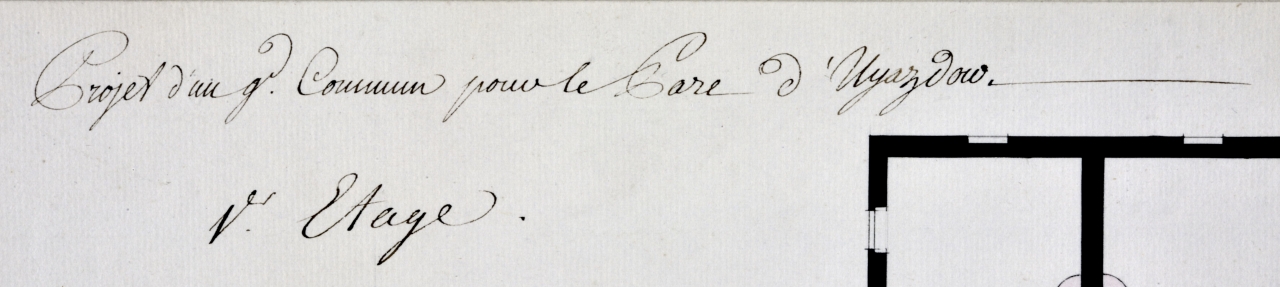 Projet d'un gd. Commun pour le Parc d'Uyazdow.
1er. Etage.